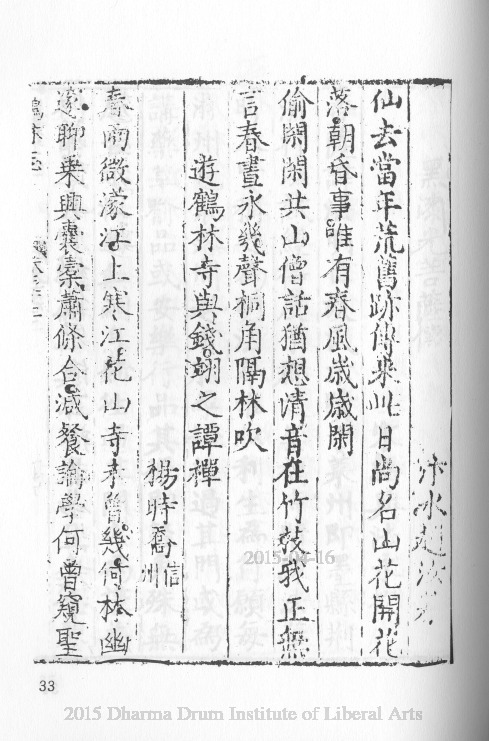 水趙汝
仙去當年荒舊跡傳來此日尚名山花開花
落朝昏事唯有春風歲歲閑
偷閑閑共山僧話猶想清音在竹枝我正無
言春晝永幾聲桐角隔林吹
遊鶴林寺與錢翊之譚禪
楊時喬信州
春雨微濛江上寒江花山寺曾幾何林幽
遂聊乘興囊橐蕭條合減餐論學何曾窺聖
鶴林志
33
2015-04-16
2015 Dharma Drum Institute of Liberal Arts